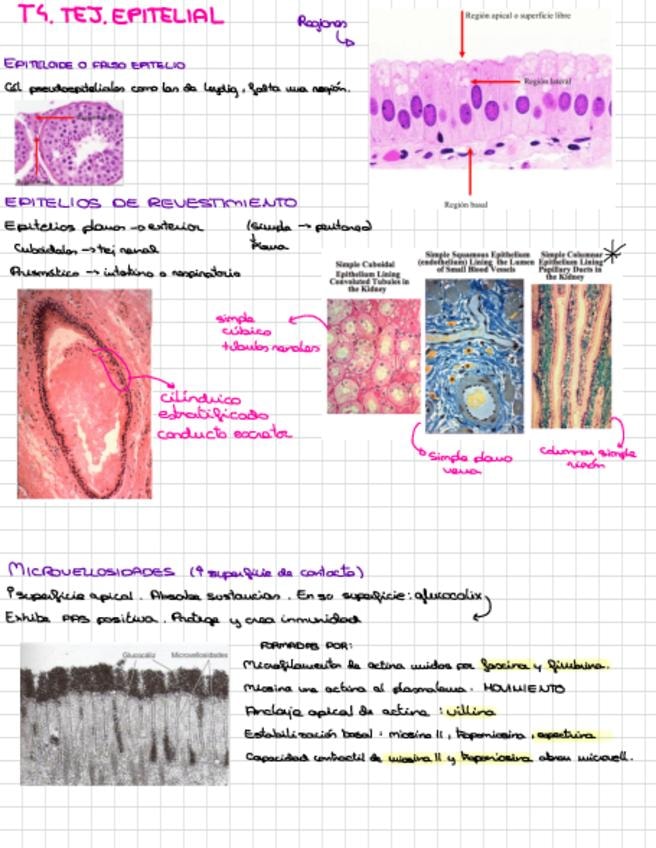 T4. TEJ. EPITELIAL
Regiones
Región apical o superficie libre
Región lateral
Región basal
EPITELOIDE O FALSO EPITELIO
Cél pseudoepiteliales como las de Leydig, falta una región.
EPITELIOS DE REVESTIMIENTO
Epitelios plano → exterior (simple → peritoneo)
Cuboidales → tej renal
Prismático → intestino o respiratorio
Simple Cuboidal
Epithelium Lining
Convoluted Tubules in
the Kidney
Simple Squamous Epithelium
(endothelium) Lining the Lumen
of Small Blood Vessels
Simple Columnar
Epithelium Lining
Papillary Ducts in
the Kidney
simple
cúbico
túbulos renales
cilíndrico
estratificado
conducto excretor
simple plano
vena
columnar simple
riñón
MICROVELLOSIDADES (↑ superficie de contacto)
↑ superficie apical. Absorbe sustancias. En su superficie: glucocalix
Exhibe PAS positiva. Protege y crea inmunidad
Glucocáliz
Microvellosidades
FORMADAS POR:
Microfilamentos de actina unidos por fascina y fimbrina.
Miosina une actina al plasmalema. MOVIMIENTO
Anclaje apical de actina: villina
Estabilización basal: miosina II, tropomiosina, espectrina
Capacidad contractil de miosina II y tropomiosina abren microvell.